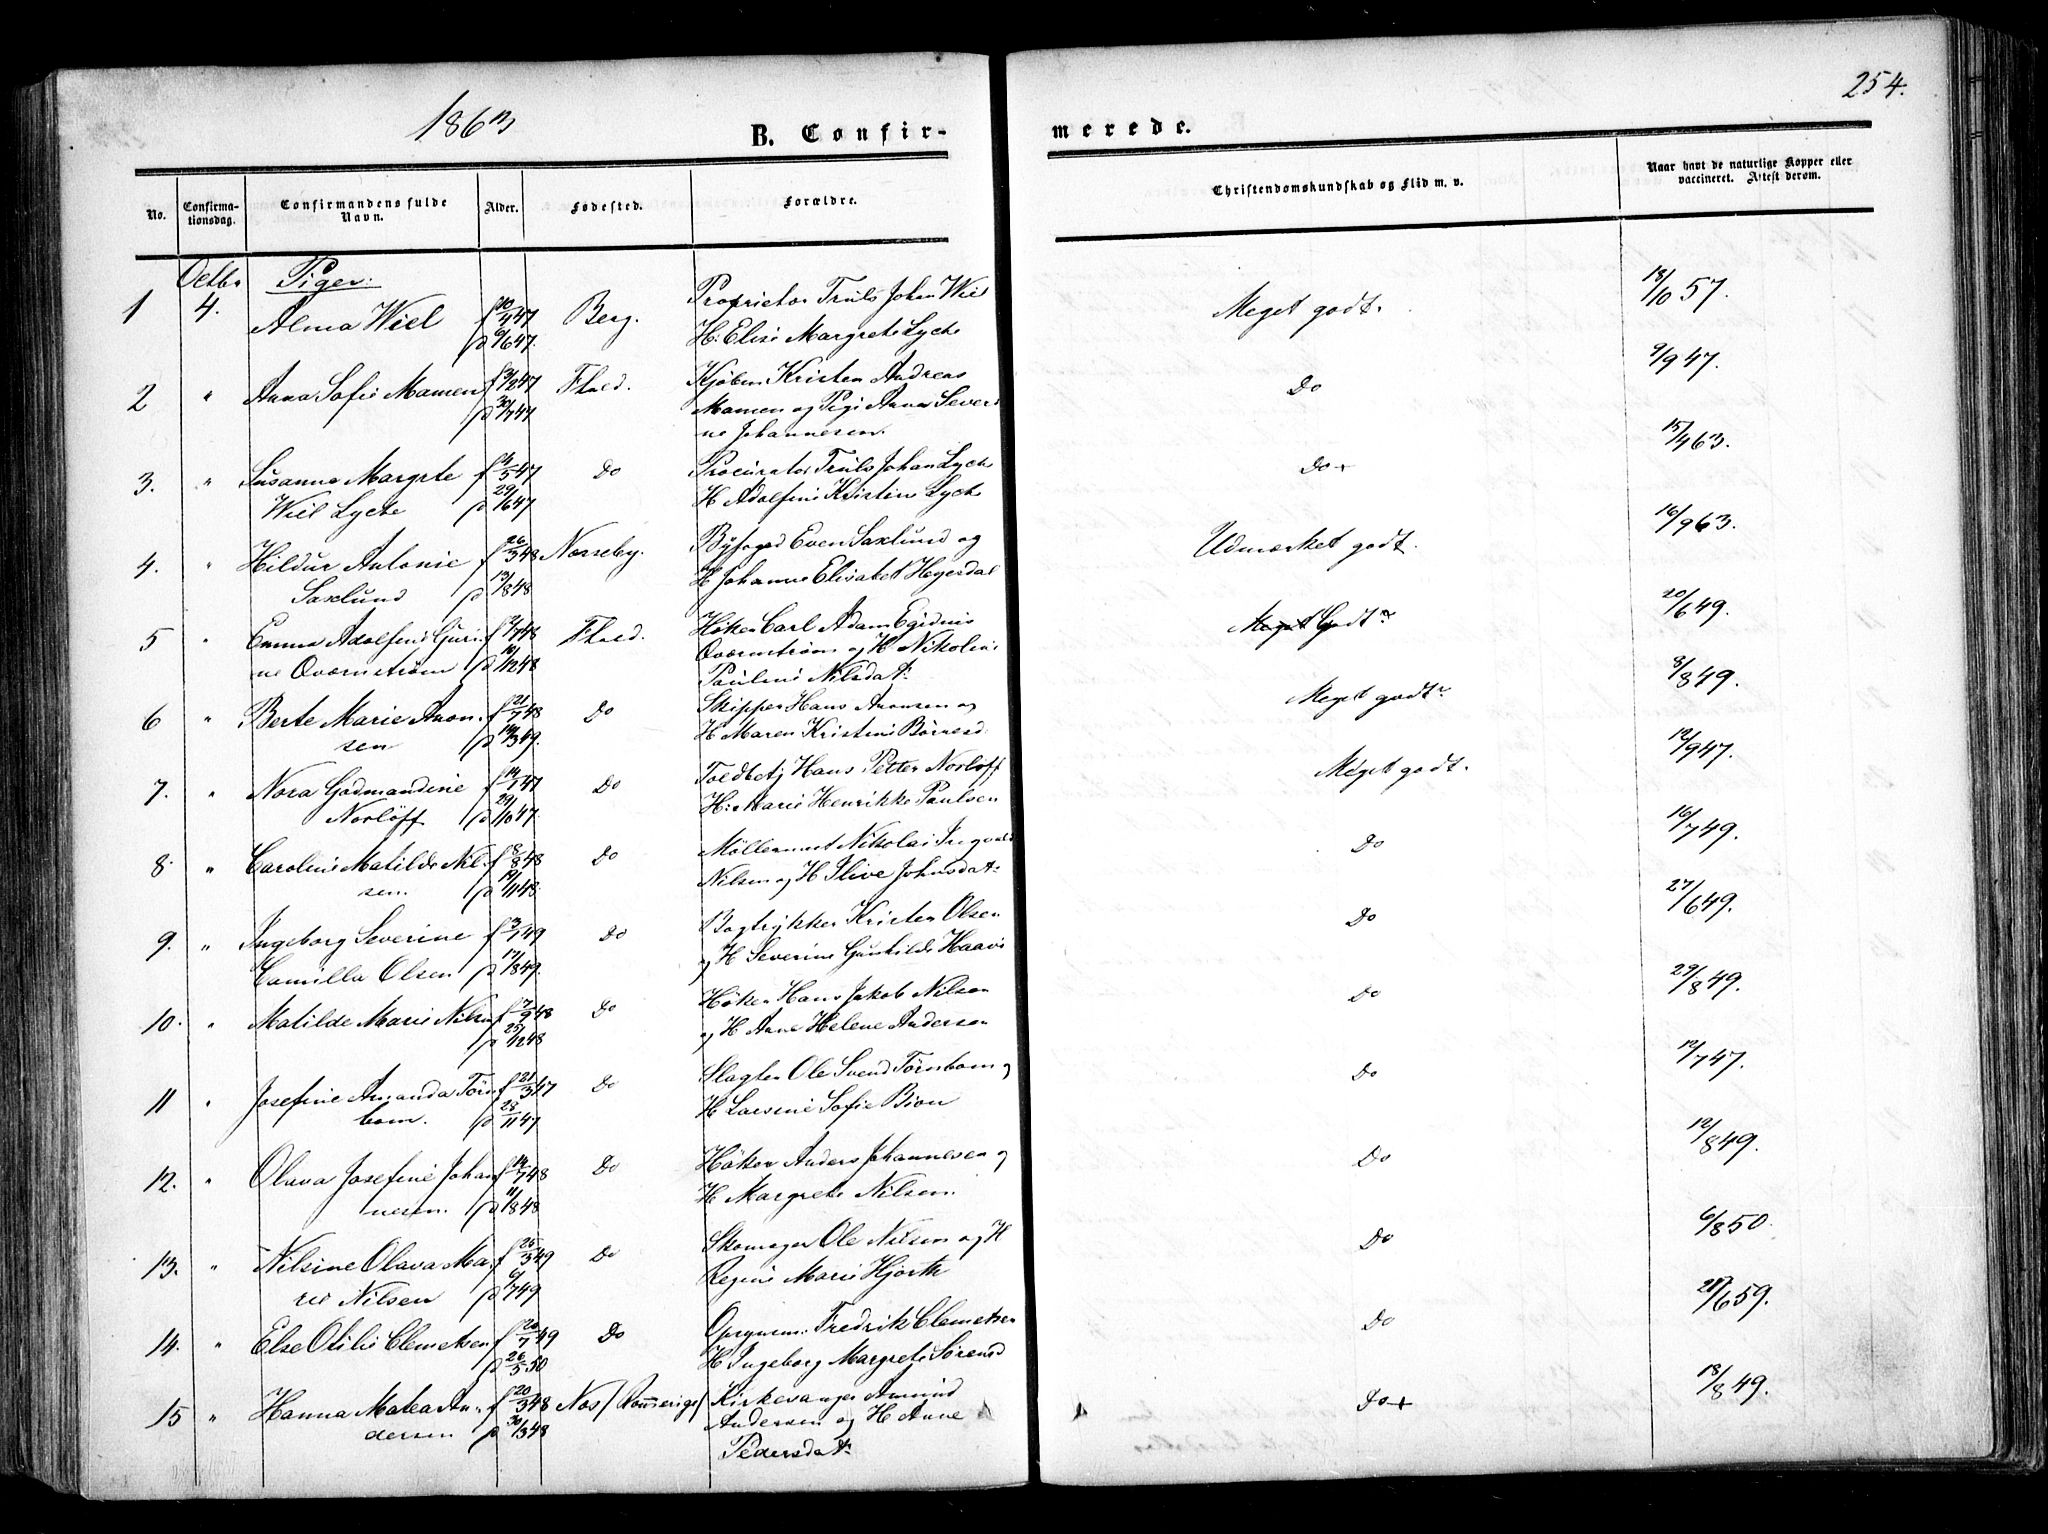 254.
1863
B. Confir-
merede.
No.
Confirma-
tionsdag.
Confirmandens fulde
Navn.
Alder.
Fødested.
Forældre.
Christendomskundskab og Flid m. v.
Naar havt de naturlige Kopper eller
vaccineret. Attest derom.
Octbr Piger:
1 4. Alma Wiel f 10/4 47 Berg. Proprietær Truls Johan Wiel Meget godt. 18/10 57.
d 9/6 47. H: Elise Margrete Lyche
2 " Anna Sofie Mamen f 3/2 47 Fhald. Kjøbm Kristen Andreas Do 9/9 47.
d 30/7 47 Mamen og Pige Anna Severi
ne Johannesen.
3. " Susanna Margrete f 14/5 47 Do Procurator Truls Johan Lyche Do + 15/4 63.
Wiel Lyche d 29/6 47 H Adolfine Kristine Lyche
4. " Hildur Antonie f 26/3 48 Nærseby. Byfoged Even Saxlund og Udmærket godt. 16/9 63.
Saxlund d 13/8 48 H Johanne Elisabet Heyerdal
5 " Emma Adolfine Guri f 2/7 48 Fhald. Høker Carl Adam Egidius Meget Godt 20/6 49.
ne Qværnstrøm d 10/12 48 Qværnstrøm og H Nikoline
Pauline Nilsdat:
6 " Berte Marie Aron f 21/7 48 Do Skipper Hans Aronsen og Meget godt 8/8 49.
sen d 14/3 49. H Maren Kristine Børresd.
7. " Nora Godmandine f 14/1 47 Do Toldbetj Hans Petter Norløff Meget godt. 12/9 47.
Norløff d 29/10 47. H: Marie Henrikke Paulsen
8. " Caroline Matilde Nil f 8/8 48 Do Møllermest Nikolai Ingvald Do 16/7 49.
sen. d 19/11 48. Nilsen og H Olive Johnsdat:
9. " Ingeborg Severine f 3/1 49 Do Bogtrykker Kristen Olsen Do 27/6 49.
Camilla Olsen d 17/8 49. og H Severine Gunhilde Haavi
10. " Matilde Marie Nilsen f 7/9 48 Do Høker Hans Jakob Nilsen Do 29/8 49.
d 25/12 48 og H Anne Helene Andersen
11 " Josefine Amanda Törn f 21/3 47 Do Slagter Ole Svend Törnbom og Do 12/7 47.
bom. d 28/11 47 H Larsine Sofie Bion
12. " Olava Josefine Johan f 14/7 48 Do Høker Anders Johannesen og Do 12/8 49.
nesen. d 11/8 48 H Margrete Nilsen.
13. " Nilsine Olava Ma f 25/3 49 Do Skomager Ole Nilsen og H Do 6/8 50.
rie Nilsen d 6/7 49 Regine Marie Hjorth
14. " Else Otilie Clemetsen f 20/7 49 Do Opsynsm: Fredrik Clemetsen Do 28/6 59.
d 26/5 50 H Ingeborg Margrete Sørensd
15 " Hanna Malea An f 20/3 48 Næs/Romerige/ Kirkesanger Amund Do + 18/8 49.
dersen d 30/3 48 Andersen og H Anne
Pedersdat: